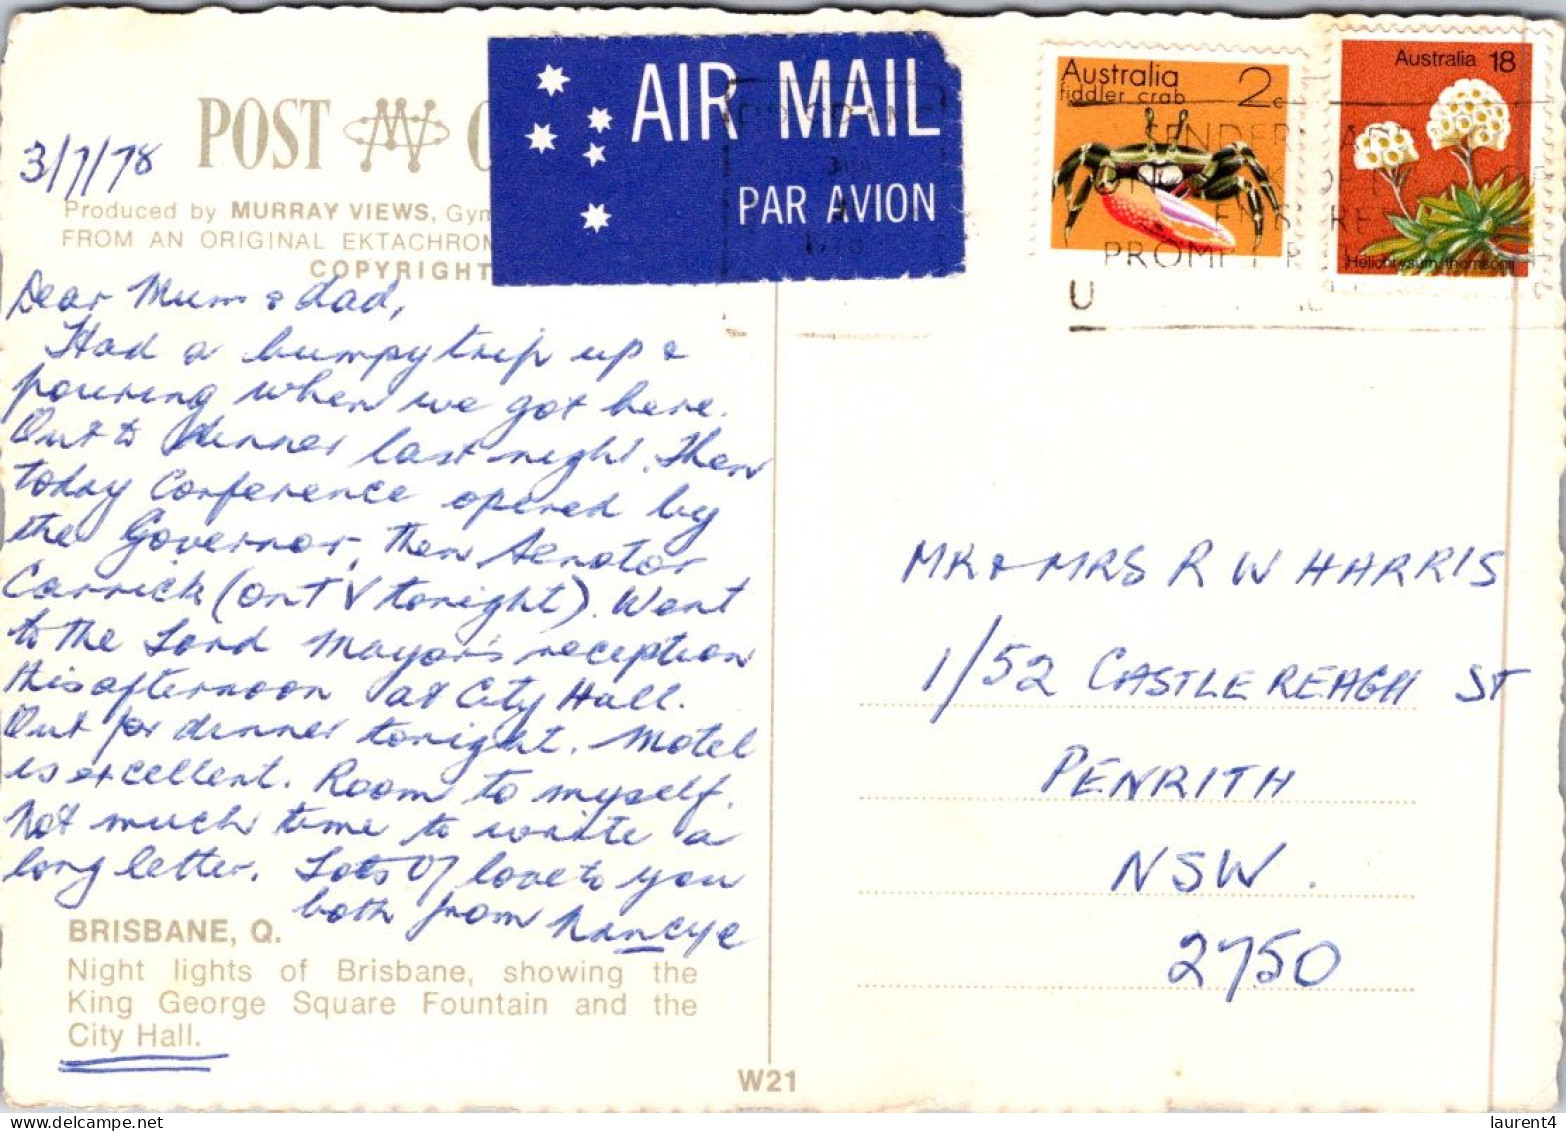 POST C
AIR MAIL
PAR AVION
Australia
fiddler crab 2c
Australia 18
Helichrysum thomsonii
SENDER
PROMPT
U
3/7/78
Produced by MURRAY VIEWS, Gym
FROM AN ORIGINAL EKTACHROM
COPYRIGHT
Dear Mum & Dad,
Had a bumpy trip up &
pouring when we got here.
Out to dinner last night. Then
today Conference opened by
the Governor, then Senator
Carrick (on TV tonight). Went
to the Lord Mayor's reception
this afternoon at City Hall.
Out for dinner tonight. Motel
is excellent. Room to myself.
Not much time to write a
long letter. Lots of love to you
both from Nancye
BRISBANE, Q.
Night lights of Brisbane, showing the
King George Square Fountain and the
City Hall.
W21
MR & MRS R W HARRIS
1/52 CASTLEREAGH ST
PENRITH
NSW.
2750
laurent4